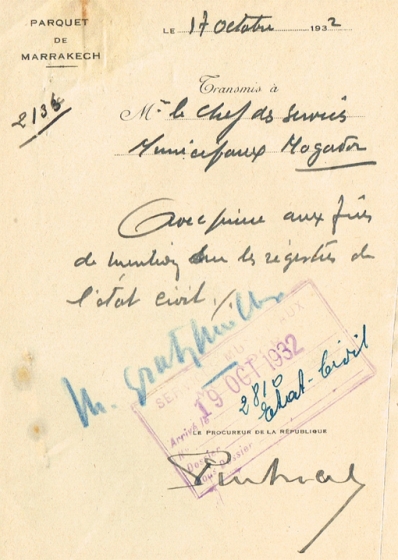 PARQUET
DE
MARRAKECH
LE 17 Octobre 1932
2136
Transmis à
Mr le Chef des Services
Municipaux Mogador
Avec prière aux fins
de mention sur les registres de
l'état civil ./.
SERVICES MUNICIPAUX
19 OCT 1932
Arrivée le
2810
Etat-Civil
Dossier
Sous Dossier
LE PROCUREUR DE LA RÉPUBLIQUE